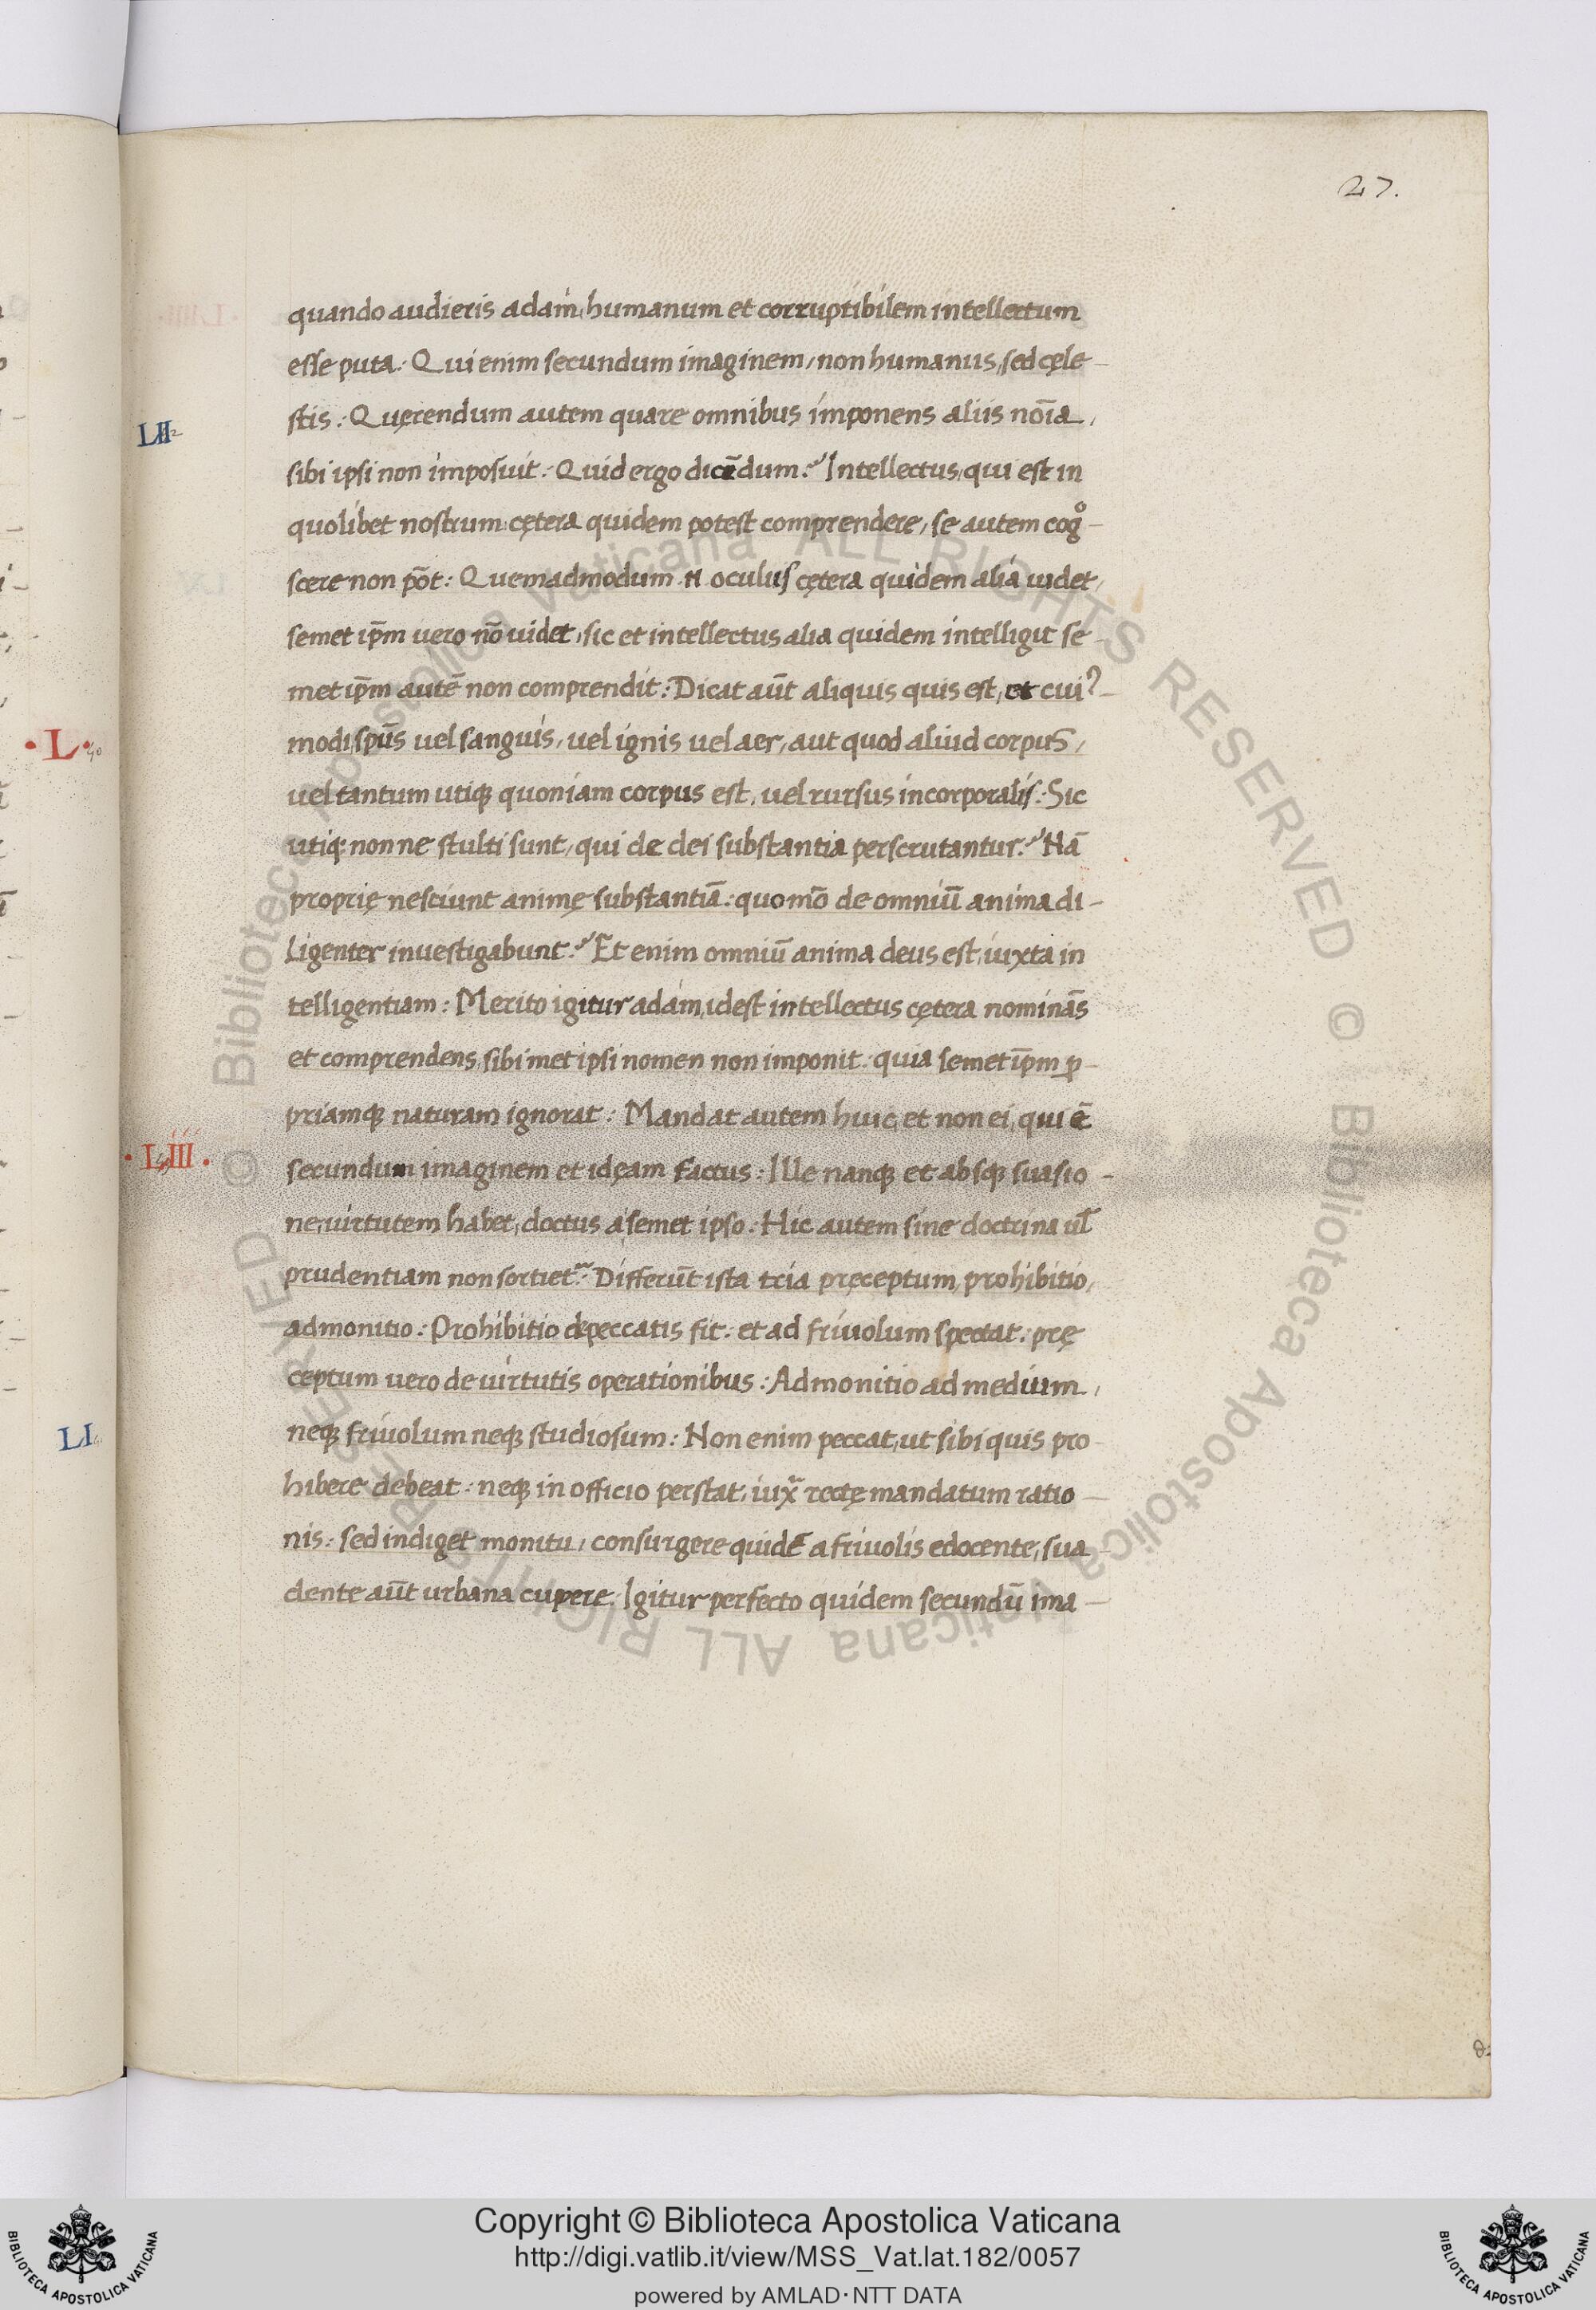 27.
quando audieris adam, humanum et corruptibilem intellectum
esse puta: Qui enim secundum imaginem, non humanus, sed cęle-
stis: Quęrendum autem quare omnibus imponens aliis noīa,
LII
sibi ipsi non imposuit: Quid ergo dicēdum: Intellectus, qui est in
quolibet nostrum cętera quidem potest comprendere, se autem cogͦ-
scere non pōt: Quemadmodum n̄ oculus cętera quidem alia uidet,
semet ip̄m uero nō uidet, sic et intellectus alia quidem intelligit se-
met ip̄m autē non comprendit: Dicat aūt aliquis quis est, et cuiꝰ-
L
modi, spūs uel sanguis, uel ignis uel aer, aut quod aliud corpus,
uel tantum utiqꝫ quoniam corpus est, uel rursus incorporalis: Sic
utiqꝫ non ne stulti sunt, qui de dei substantia perscrutantur: Nā
proprię nesciunt animę substantiā: quomō de omniū anima di-
ligenter inuestigabunt: Et enim omniū anima deus est, iuxta in
telligentiam: Merito igitur adam, idest intellectus cętera nominās
et comprendens, sibi met ipsi nomen non imponit: quia semet ip̄m ꝓ-
priamqꝫ naturam ignorat: Mandat autem huic, et non ei, qui ē
LIII
secundum imaginem et idęam factus: Ille nanqꝫ et absqꝫ suasio-
ne, uirtutem habet, doctus a semet ipso: Hic autem sine doctrina ul̄
prudentiam non sortiet᷑: Differūt ista tria pręceptum, prohibitio,
admonitio: Prohibitio de peccatis fit: et ad friuolum spectat: prę
ceptum uero de uirtutis operationibus: Admonitio ad medium,
LI
neqꝫ friuolum neqꝫ studiosum: Non enim peccat, ut sibi quis pro
hibere debeat: neqꝫ in officio perstat, iux̄ rectę mandatum ratio-
nis: sed indiget monitu, consurgere quidē a friuolis edocente, sua-
dente aūt urbana cupere. Igitur perfecto quidem secundū ima-
© Biblioteca Apostolica Vaticana ALL RIGHTS RESERVED
© Biblioteca Apostolica Vaticana ALL RIGHTS RESERVED
Copyright © Biblioteca Apostolica Vaticana
http://digi.vatlib.it/view/MSS_Vat.lat.182/0057
powered by AMLAD·NTT DATA
BIBLIOTECA APOSTOLICA VATICANA
BIBLIOTECA APOSTOLICA VATICANA